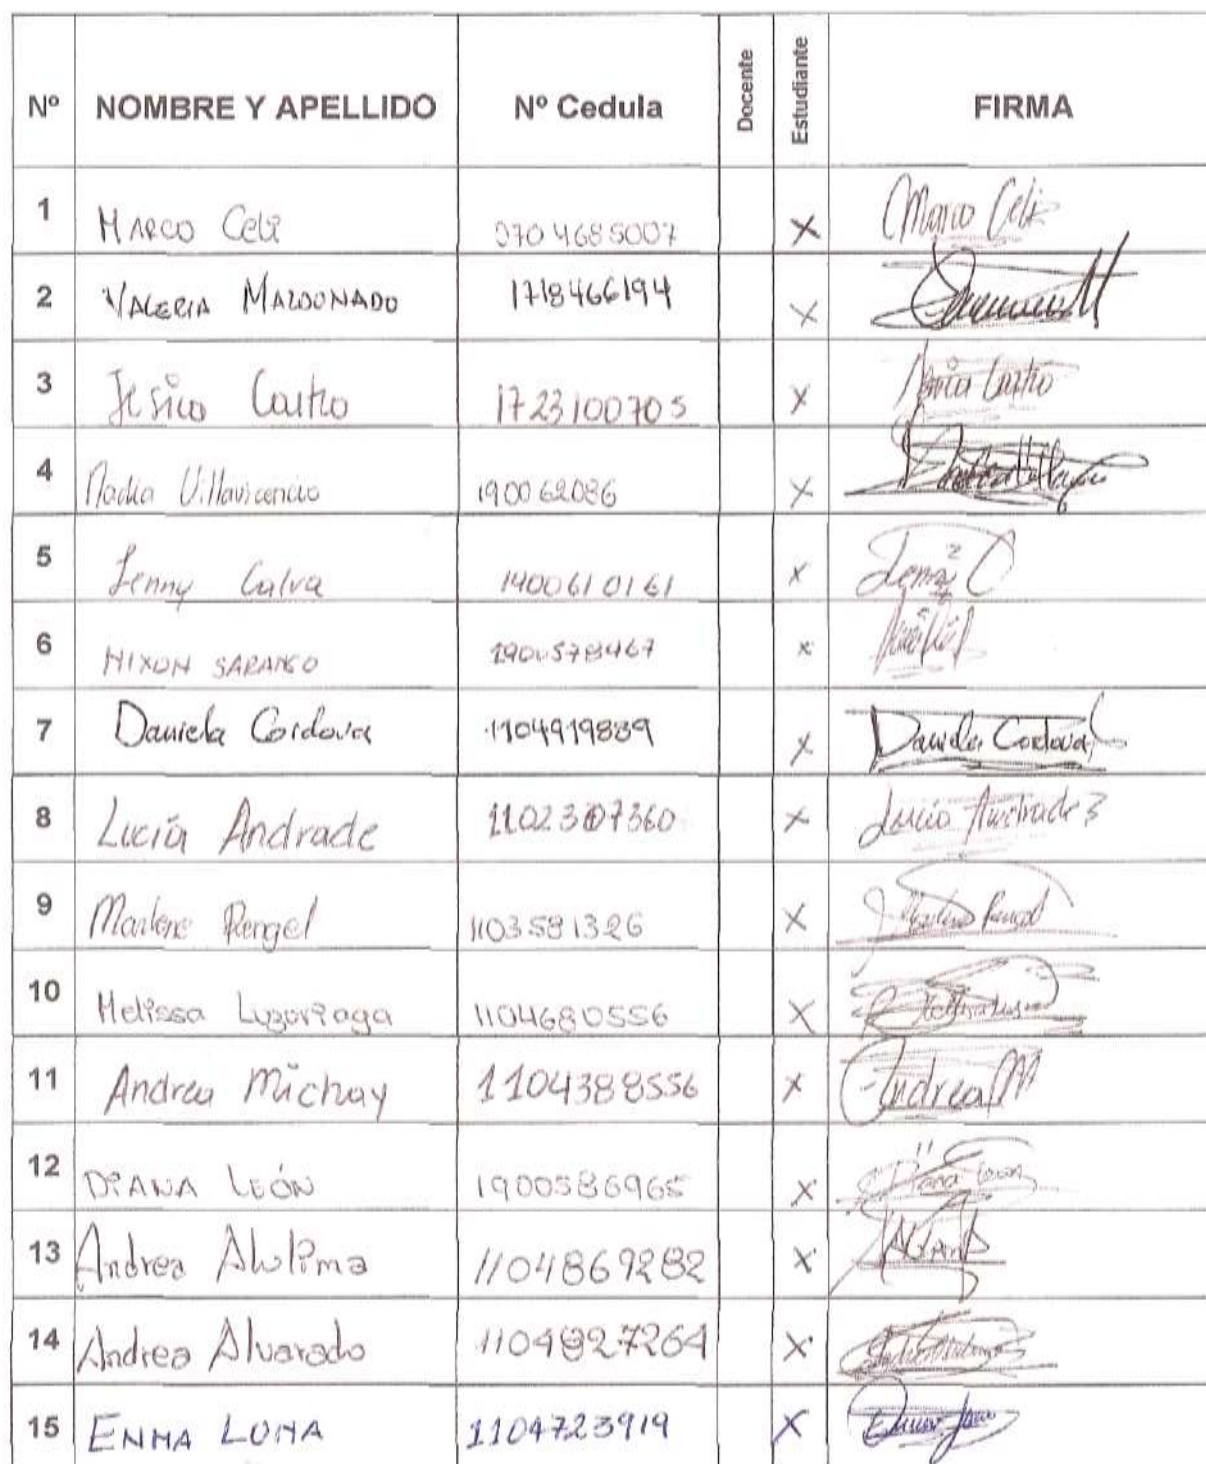 Nº NOMBRE Y APELLIDO Nº Cedula Docente Estudiante FIRMA
1 MARCO Celi 0704685007 X Marco Celi
2 VALERIA MALDONADO 1718466194 X
3 Jesica Castro 1723100705 X Jesica Castro
4 Nadia Villavicencio 190062086 X
5 Jenny Calva 1400610161 X Jenny C
6 NIXON SARANGO X
7 Daniela Cordova 1104919839 X Daniela Cordova
8 Lucía Andrade 1102307360 X Lucía Andrade
9 Marlene Rengel 1103581326 X Marlene Rengel
10 Melissa Luzuriaga 1104680556 X
11 Andrea Michay 1104388556 X Andrea M
12 DIANA LEÓN 1900586965 X Diana León
13 Andrea Alulima 1104869282 X
14 Andrea Alvarado 1104927264 X
15 ENMA LUNA 1104723919 X